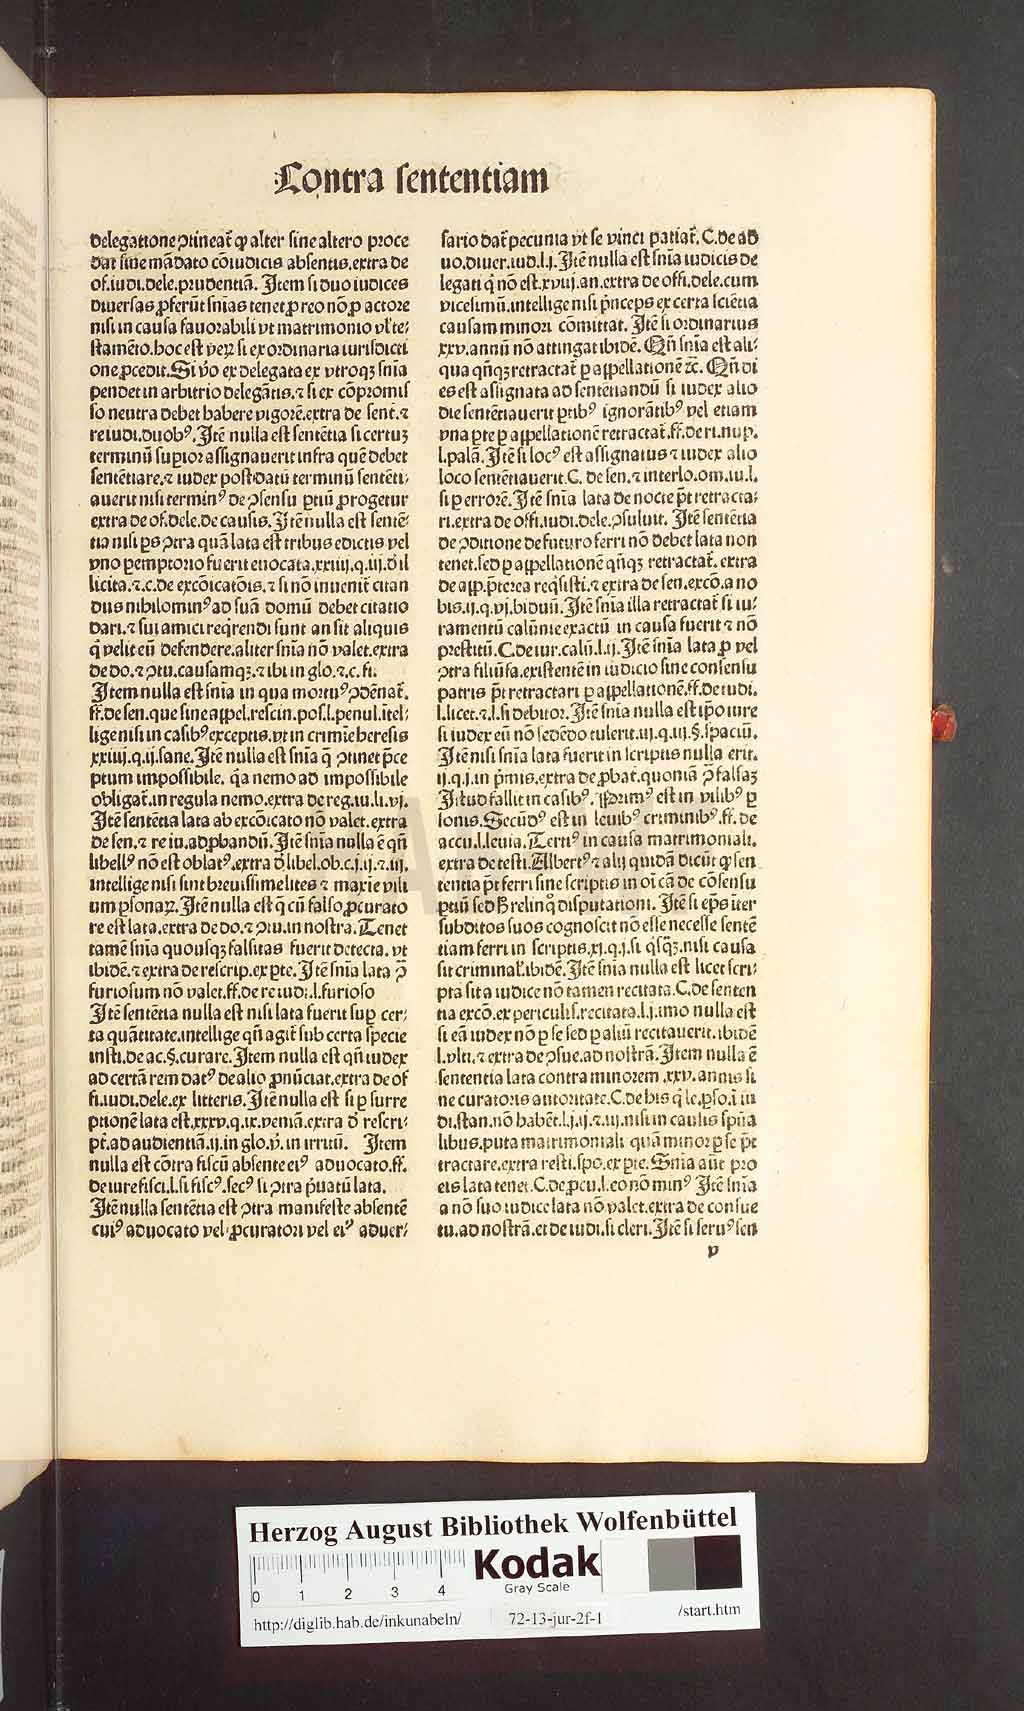 Contra sententiam
delegatione ꝯtineat᷑ ꝙ alter sine altero proce
dat sine mādato cōiudicis absentis.extra de
of.iudi.dele.prudentiā. Item si duo iudices
diuersas ꝓferūt sn̄ias tenet ꝓ reo nō ꝓ actore
nisi in causa fauorabili vt matrimonio vl̓ te⸗
stamēto.hoc est veꝝ si ex ordinaria iurisdicti
one ꝓcedit.Si v̓o ex delegata ex vtroqꝫ sn̄ia
pendet in arbitrio delegātis.⁊ si ex cōpromis
so neutra debet habere vigorē.extra de sent̄.⁊
re iudi.duobꝰ.Itē nulla est sentētia si certuꝫ
terminū supior assignauerit infra quē debet
sentētiare.⁊ iudex post datū terminū sentēti⸗
auerit nisi terminꝰ de ꝯsensu ꝑtiū ꝓrogetur
extra de of.dele.de causis.Itē nulla est sentē⸗
tia nisi ps ꝯtra quā lata est tribus edictis vel
vno ꝑemptorio fuerit euocata.xxiiij.q.iij.d̓ il
licita.⁊.c.de excōicatōis.⁊ si nō inuenit̄ citan
dus nihilominꝰ ad suā domū debet citatio
dari.⁊ sui amici reqͥrendi sunt an sit aliquis
qͥ velit eū defendere.aliter sn̄ia nō valet.extra
de do.⁊ ꝯtu.causamqꝫ.⁊ ibi in glo.⁊.c.fi.
Item nulla est sn̄ia in qua mortuꝰ ꝯdēnat᷑.
ff.de sen.que sine appel.rescin.pos.l.penul.itel⸗
lige nisi in casibꝰ exceptis.vt in crimīe heresis
xxiiij.q.ij.sane.Itē nulla est sn̄ia q̄ ꝯtinet p̄ce
ptum impossibile. qͣ nemo ad impossibile
obligat᷑.in regula nemo.extra de reg.iu.li.vj.
Itē sentētia lata ab excōicato nō valet.extra
de sen.⁊ re iu.ad ꝓbandū.Itē sn̄ia nulla ē qn̄
libellꝰ nō est oblatꝰ.extra d̓ libel.ob.c.j.ij.⁊.iij.
intellige nisi sint breuissime lites ⁊ maxīe vili
um ꝑsonaꝝ.Itē nulla est q̄ cū falso ꝓcurato
re est lata.extra de do.⁊ ꝯtu.in nostra.Tenet
tamē sn̄ia quousqꝫ falsitas fuerit detecta. vt
ibidē.⁊ extra de rescrip.ex ꝑte.Itē sn̄ia lata ꝯ̄
furiosum nō valet.ff.de re iudi.l.furioso
Itē sentētia nulla est nisi lata fuerit suꝑ cer⸗
ta quātitate.intellige qn̄ agit᷑ sub certa specie
insti.de ac.§.curare.Item nulla est qn̄ iudex
ad certā rem datꝰ de alio ꝓnūciat.extra de of
fi.iudi.dele.ex litteris.Itē nulla est si ꝑ surre
ptionē lata est.xxxv.q.ix.veniā.extra d̓ rescri⸗
pt̄.ad audientiā.ij.in glo.v̄.in irritū. Item
nulla est cōtra fiscū absente eiꝰ aduocato.ff.
de iure fisci.l.si fiscꝰ.secꝰ si ꝯtra p̄uatū lata.
Itē nulla sentētia est ꝯtra manifeste absentē
cuiꝰ aduocato vel ꝓcuratori vel eiꝰ aduer⸗
sario dat᷑ pecunia vt se vinci patiat᷑.C.de ad
uo.diuer.iud.l.j.Itē nulla est sn̄ia iudicis de
legati qͥ nō est.xviij.an.extra de offi.dele.cum
vicesimū.intellige nisi p̄nceps ex certa sciētia
causam minori cōmittat. Itē si ordinarius
xxv.annū nō attingat ibidē. Qn̄ sn̄ia est ali⸗
qua qn̄qꝫ retractat᷑ ꝑ appellationē ⁊c̄. Qn̄ di
es est assignata ad sentētiandū si iudex alio
die sentētiauerit ꝑtibꝰ ignorātibꝰ vel etiam
vna ꝑte ꝑ appellationē retractat᷑.ff.de ri.nup.
l.palā.Itē si locꝰ est assignatus ⁊ iudex alio
loco sentētiauerit.C.de sen.⁊ interlo.om.iu.l.
si ꝑ errorē.Itē sn̄ia lata de nocte p̄t retracta⸗
ri.extra de offi.iudi.dele.ꝯsuluit. Itē sentētia
de ꝯditione de futuro ferri nō debet lata non
tenet.sed ꝑ appellationē qn̄qꝫ retractat᷑. extra
de app.p̄terea reqͥsisti.⁊ extra de sen.excō.a no
bis.ij.q.vj.biduū.Itē sn̄ia illa retractat᷑ si iu⸗
ramentū calūnie exactū in causa fuerit ⁊ nō
prestitū.C.de iur.calū.l.ij.Itē sn̄ia lata ꝓ vel
ꝯtra filiū fa.existentē in iudicio sine consensu
patris p̄t retractari ꝑ appellationē.ff.de iudi.
l.licet.⁊.l.si debitor.Itē sn̄ia nulla est ipo iure
si iudex eū nō sedēdo tulerit.iij.q.iij.§.spaciū.
Itē nisi sn̄ia lata fuerit in scriptis nulla erit.
ij.q.j.in p̄mis.extra de ꝓbat.quoniā ꝯ̄ falsaꝫ
Istud fallit in casibꝰ. Primꝰ est in vilibꝰ ꝑ
sonis.Secūdꝰ est in leuibꝰ criminibꝰ.ff.de
accu.l.leuia.Tertiꝰ in causa matrimoniali.
extra de testi.Albertꝰ ⁊ alij quidā dicūt ꝙ sen
tentia p̄t ferri sine scriptis in oi cā de cōsensu
ꝑtiū sed h̄ relinqͦ disputationi. Itē si ep̄s iter
subditos suos cognoscit nō esse necesse sentē
tiam ferri in scriptis.xj.q.j.si qͥsqꝫ.nisi causa
sit criminal̓.ibidē.Itē sn̄ia nulla est licet scri⸗
pta sit a iudice nō tamen recitata.C.de senten
tia excō.ex periculis.recitata.l.j.imo nulla est
si eā iudex nō ꝑ se sed ꝑ aliū recitauerit.ibidē
l.vlti.⁊ extra de ꝯsue.ad nostrā.Item nulla ē
sententia lata contra minorem .xxv.annis si
ne curatoris autoritate.C.de his qͥ le.ꝑso.ī iu
di.stan.nō habēt.l.j.ij.⁊.iij.nisi in causis spn̄a
libus.puta matrimoniali quā minor ꝑ se p̄t
tractare.extra resti.spo.ex ꝑte.Sn̄ia aūt pro
eis lata tenet.C.de ꝓcu.l.eo nō minꝰ Itē sn̄ia
a nō suo iudice lata nō valet.extra de consue
tu.ad nostrā.et de iudi.si cleri.Itē si seruꝰ sen
v
Herzog August Bibliothek Wolfenbüttel
Kodak
Gray Scale
0 1 2 3 4
http://diglib.hab.de/inkunabeln/ 72-13-jur-2f-1 /start.htm